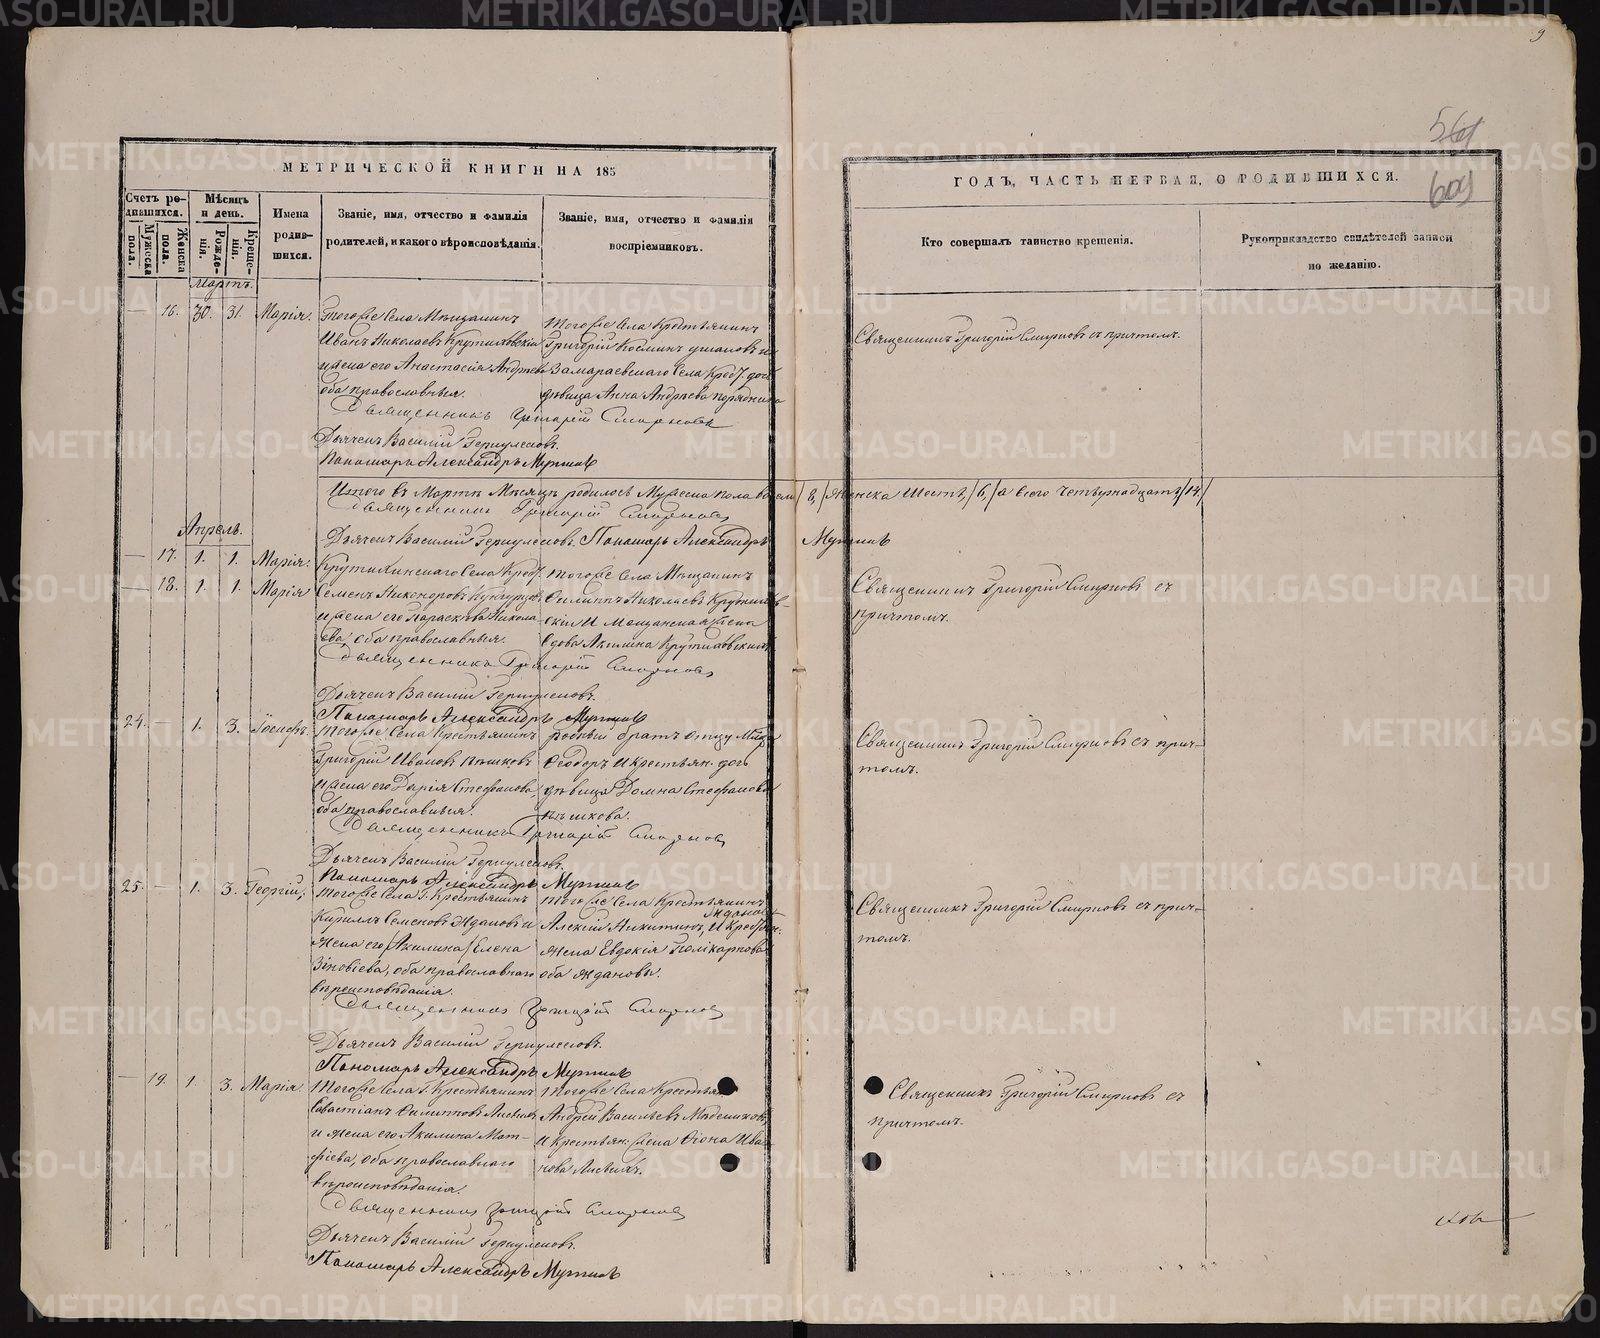 9
561
609
МЕТРИЧЕСКОЙ КНИГИ НА 185
ГОДЪ, ЧАСТЬ ПЕРВАЯ, О РОДИВШИХСЯ.
Счетъ родившихся.
Мужеска пола.
Женска пола.
Мѣсяцъ и день.
Рожденія.
Крещенія.
Имена родившихся.
Званіе, имя, отчество и фамилія
родителей, и какого вѣроисповѣданія.
Званіе, имя, отчество и фамилія
воспріемниковъ.
Кто совершалъ таинство крещенія.
Рукоприкладство свидѣтелей записи
по желанію.
Мартъ.
16. 30. 31. Марія.
Тогоже Села Мѣщанинъ
Иванъ Николаевъ Крутиховскій
и жена его Анастасія Андреева
оба православныя.
Тогоже Села Крестьянинъ
Григорій Косминъ
Замараевскаго Села Крест. дочь
дѣвица Анна Андреева
Священникъ Григорій Смирновъ съ причтомъ.
Священникъ Григорій Смирновъ
Дьячекъ Василій
Пономарь Александръ
Итого въ Мартѣ Мѣсяцѣ родилось Мужеска пола восемь /8,/ Женска Шесть, /6,/ а всего Четырнадцать /14./
Священникъ Григорій Смирновъ
Дьячекъ Василій Пономарь Александръ
Апрель.
17. 1. 1. Марія.
18. 1. 1. Марія
Крутихинскаго Села Крест.
Семенъ Никоноровъ
и жена его Параскева Никола-
ева, оба православныя.
тогоже Села Мѣщанинъ
Филиппъ Николаевъ Крутихов-
скій И Мещанская жена
вдова Акилина Крутиховскихъ
Священникъ Григорій Смирновъ съ
причтомъ.
Священникъ Григорій Смирновъ
Дьячекъ Василій
Пономарь Александръ
24. 1. 3. Іосифъ.
тогоже Села Крестьянинъ
Григорій Ивановъ
и жена его Дарія Стефанова,
оба православныя.
родный братъ отцу
Феодоръ И крестьян. дочь
дѣвица Домна Стефанова
Священникъ Григорій Смирновъ съ прич-
томъ.
Священникъ Григорій Смирновъ
Дьячекъ Василій
Пономарь Александръ
25. 1. 3. Георгій,
тогоже Села Г. Крестьянинъ
Кирилъ Семеновъ Ждановъ и
жена его /Акилина/ Елена
Зиновіева, оба православнаго
вѣроисповѣданія.
тогоже Села Крестьянинъ
Алексій Никитинъ Ждановъ, И Крестьян.
жена Евдокія Поликарпова
оба Ждановы.
Священникъ Григорій Смирновъ съ прич-
томъ.
Священникъ Григорій Смирновъ
Дьячекъ Василій
Пономарь Александръ
19. 1. 3. Марія
тогоже Села Г. Крестьянинъ
Савастіанъ Филиповъ
и жена его Акилина Мат-
фіева, оба православнаго
вѣроисповѣданія.
тогоже Села Крестьян.
Андрей Васильевъ
И Крестьян. жена Фіона Ива-
нова
Священникъ Григорій Смирновъ съ
причтомъ.
Священникъ Григорій Смирновъ
Дьячекъ Василій
Пономарь Александръ
METRIKI.GASO-URAL.RU